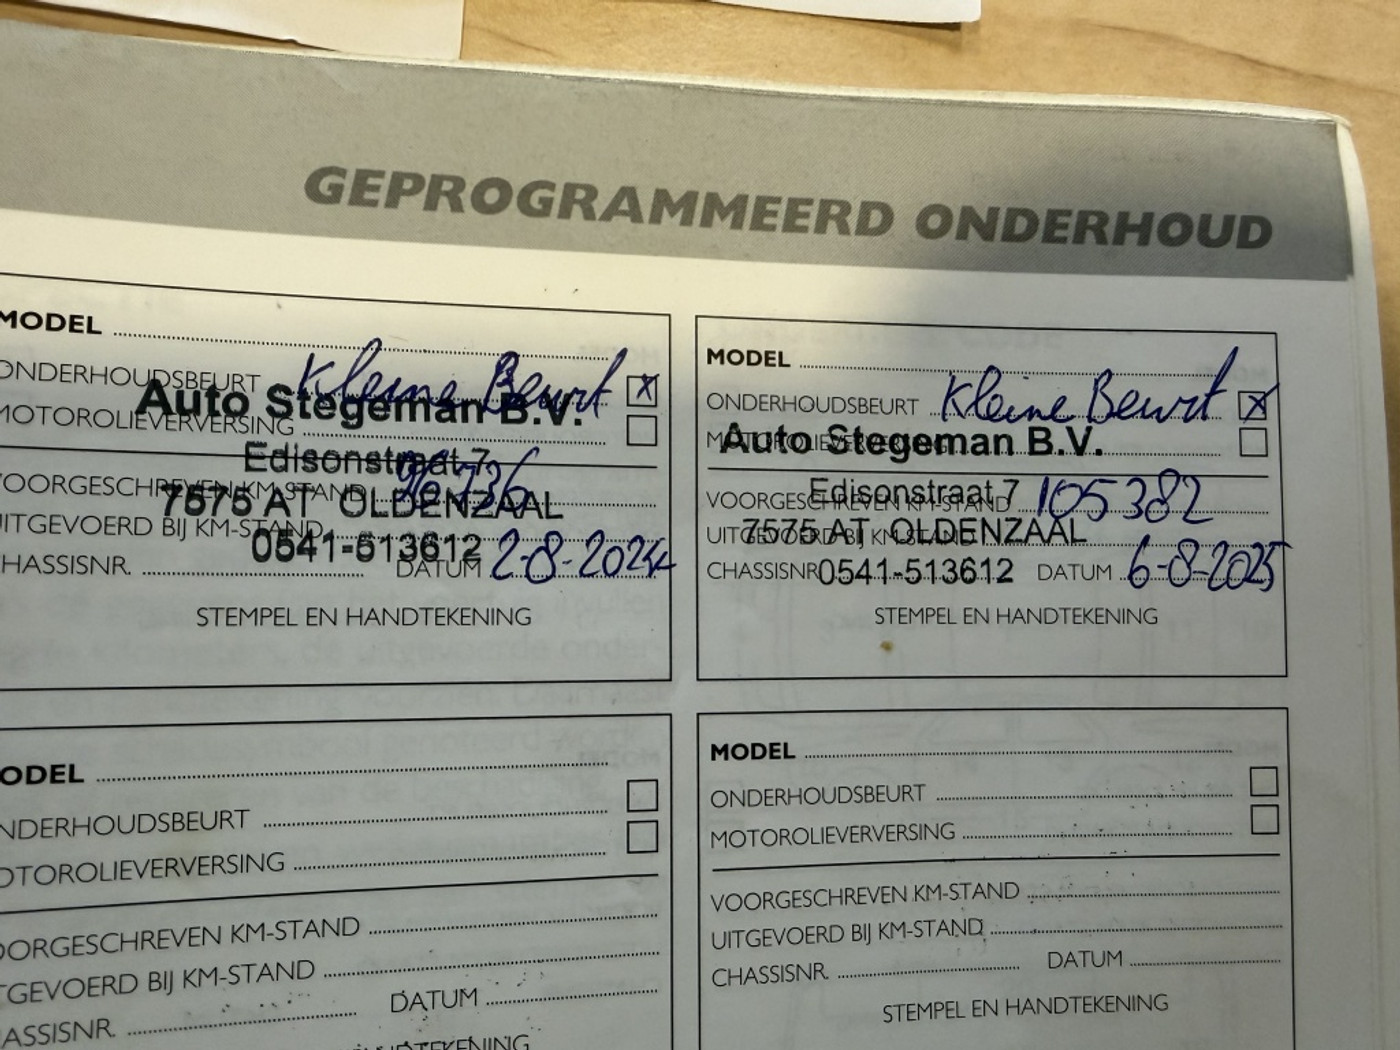 GEPROGRAMMEERD ONDERHOUD
MODEL
ONDERHOUDSBEURT Kleine Beurt X
MOTOROLIEVERVERSING
Auto Stegeman B.V.
Edisonstraat 7
7575 AT OLDENZAAL
0541-513612
VOORGESCHREVEN KM-STAND 96736
UITGEVOERD BIJ KM-STAND
CHASSISNR. DATUM 2-8-2024
STEMPEL EN HANDTEKENING
MODEL
ONDERHOUDSBEURT Kleine Beurt X
MOTOROLIEVERVERSING
Auto Stegeman B.V.
Edisonstraat 7
7575 AT OLDENZAAL
0541-513612
VOORGESCHREVEN KM-STAND 105382
UITGEVOERD BIJ KM-STAND
CHASSISNR. DATUM 6-8-2025
STEMPEL EN HANDTEKENING
ODEL
NDERHOUDSBEURT
OTOROLIEVERVERSING
OORGESCHREVEN KM-STAND
TGEVOERD BIJ KM-STAND
ASSISNR. DATUM
HANDTEKENING
MODEL
ONDERHOUDSBEURT
MOTOROLIEVERVERSING
VOORGESCHREVEN KM-STAND
UITGEVOERD BIJ KM-STAND
CHASSISNR. DATUM
STEMPEL EN HANDTEKENING